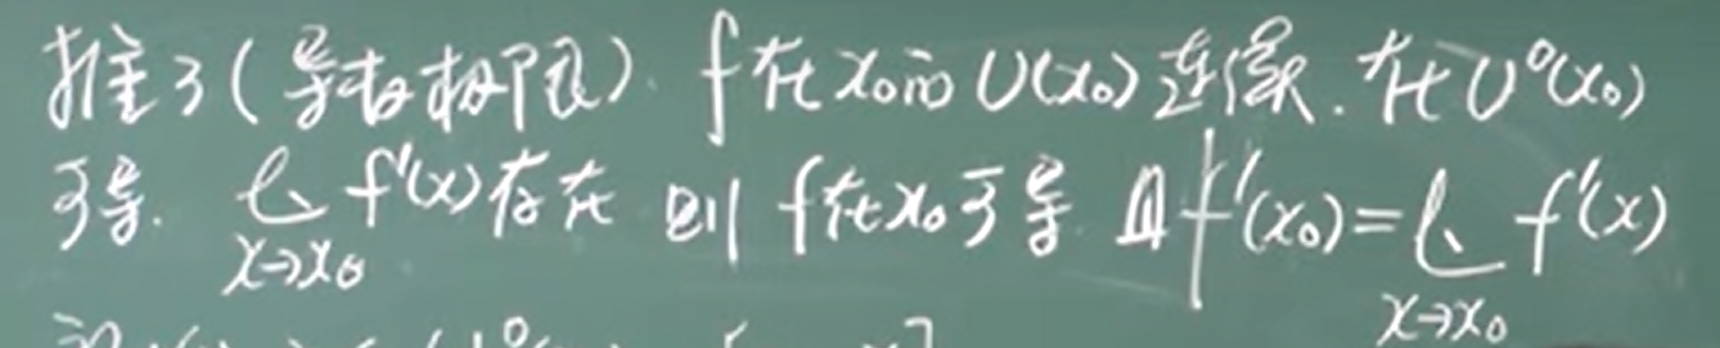 推3(导数极限). f在x₀的U(x₀)连续.在U⁰(x₀)
可导. lim f'(x)存在 则 f在x₀可导 且f'(x₀)=lim f'(x)
x→x₀ x→x₀